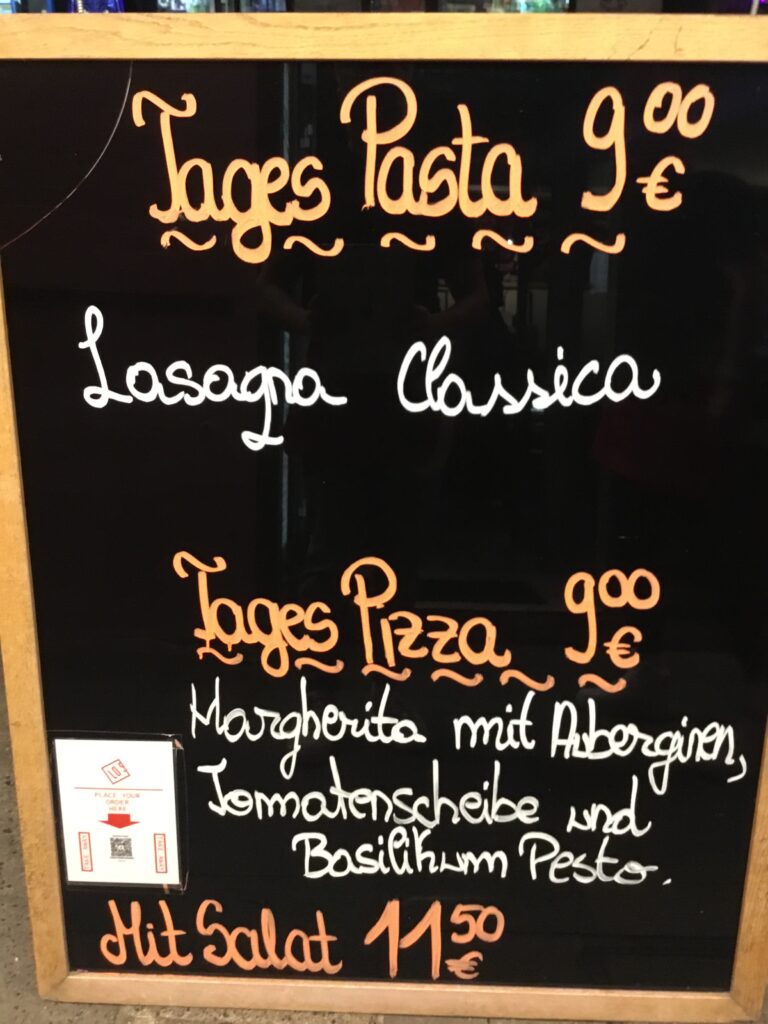 Tages Pasta 9⁰⁰ €
Lasagna Classica
Tages Pizza 9⁰⁰ €
Margherita mit Auberginen,
Tomatenscheibe und
Basilikum Pesto.
PLACE YOUR
ORDER
HERE
Mit Salat 11⁵⁰ €